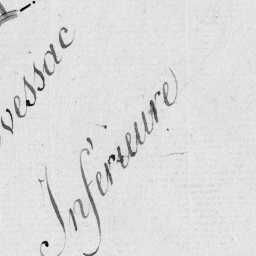 vessac
Inférieure